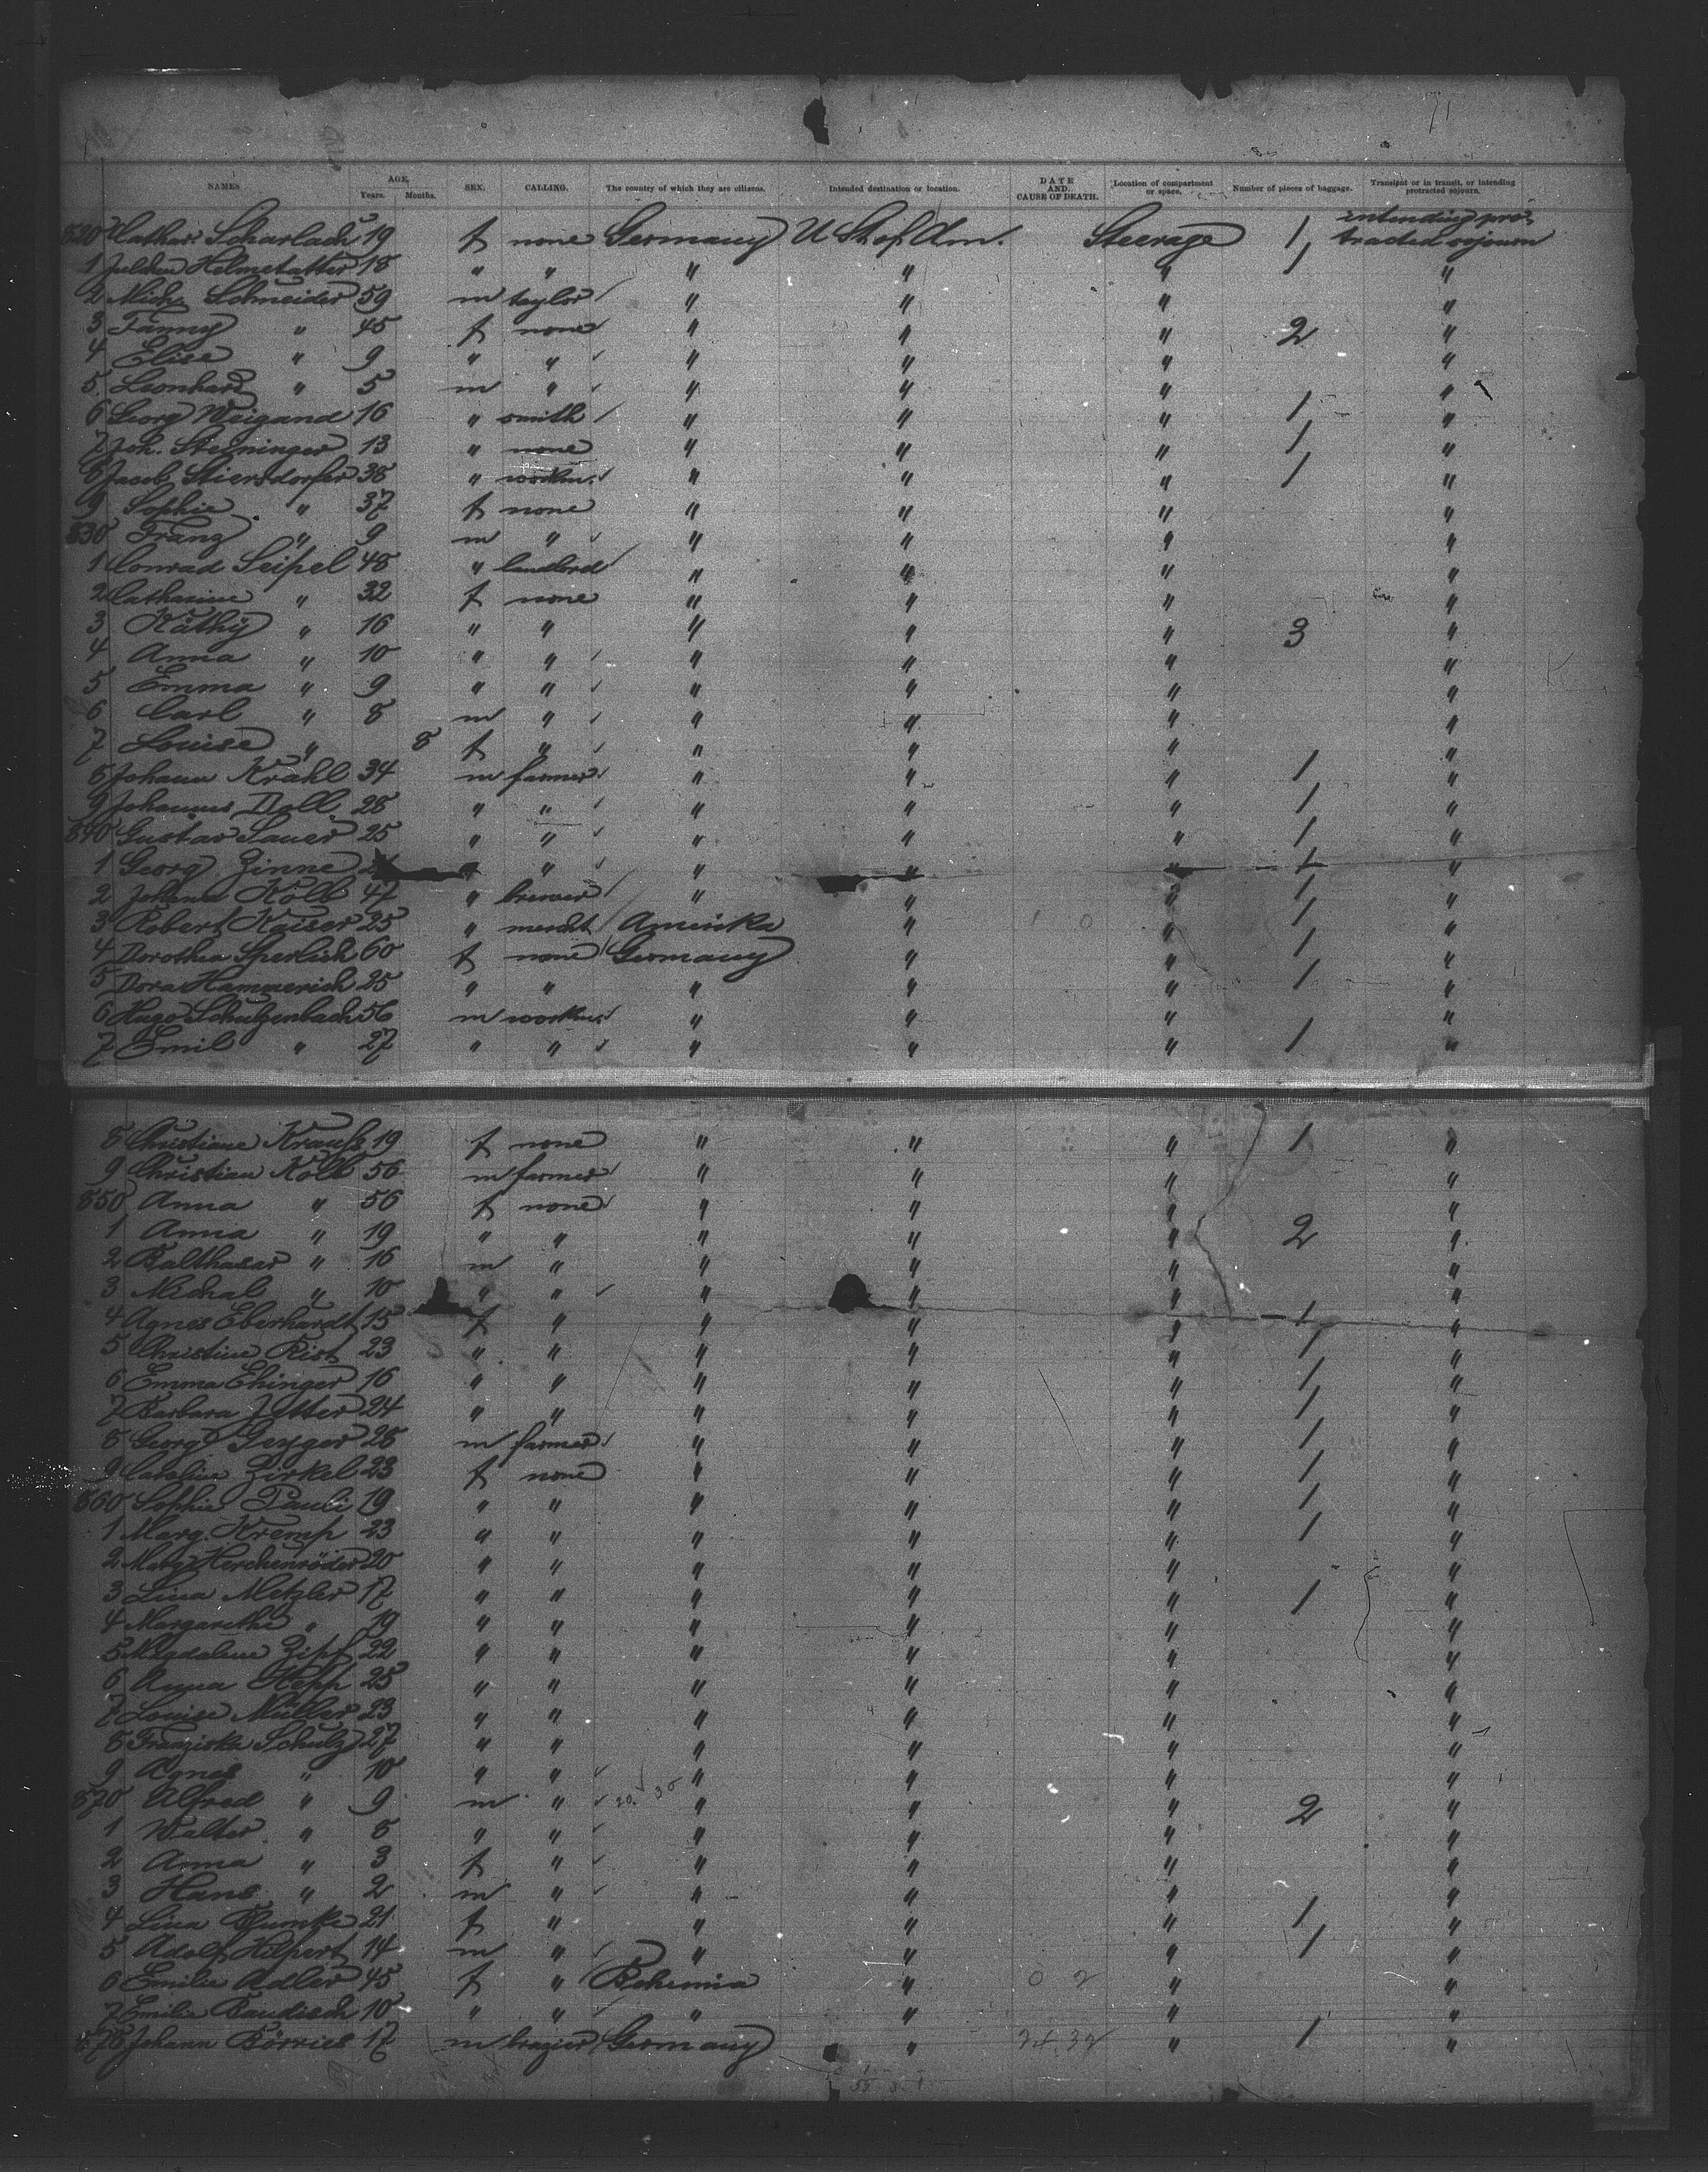 71
NAMES AGE, Years. Months. SEX. CALLING. The country of which they are citizens. Intended destination or location. DATE AND. CAUSE OF DEATH. Location of compartment or space. Number of pieces of baggage. Transient or in transit, or intending protracted sojourn.
820 Cathar. Scharlach 19 f none Germany U St of Am. Steerage 1 intending protracted sojourn
1 Helmstatter 18 " " " " " 1 "
2 Mich. Schneider 59 m taylor " " " "
3 Fanny " 45 f none " " " 2 "
4 Elise " 9 " " " " " "
5 Leonhard " 5 m " " " " "
6 Georg Weigand 16 " smith " " " 1 "
7 Joh. Steininger 13 " none " " " 1 "
8 Jacob Stiersdorfer 38 " workm. " " " 1 "
9 Sophie " 37 f none " " " "
830 Franz " 9 m " " " " "
1 Conrad Seipel 48 " landlord " " " "
2 Catharine " 32 f none " " " "
3 Käthy " 16 " " " " " 3 "
4 Anna " 10 " " " " " "
5 Emma " 9 " " " " " "
6 Carl " 8 m " " " " "
7 Louise " 8 f " " " " "
8 Johann Krahl 34 m farmer " " " 1 "
9 Johannes Doll 28 " " " " " 1 "
840 Gustav Sauer 25 " " " " " 1 "
1 Georg Zinne " " " " " 1 "
2 Johann Kolb 47 " brewer " " " 1 "
3 Robert Kaiser 25 " mercht Amerika " " 1 "
4 Dorothea Sperlich 60 f none Germany " " 1 "
5 Dora Hammerich 25 " " " " " 1 "
6 Hugo Schulzenbach 56 m workm. " " " "
7 Emil " 27 " " " " " 1 "
8 Christiane Krauß 19 f none " " " 1 "
9 Christian Kolb 56 m farmer " " " "
850 Anna " 56 f none " " " "
1 Anna " 19 " " " " " 2 "
2 Balthasar " 16 m " " " " "
3 Michal " 10 " " " " " "
4 Agnes Eberhardt 15 f " " " " 1 "
5 Christine Rist 23 " " " " " 1 "
6 Emma Ehinger 16 " " " " " 1 "
7 Barbara Jetter 24 " " " " " 1 "
8 Georg Geyger 28 m farmer " " " 1 "
9 Caroline Zirkel 23 f none " " " 1 "
860 Sophie Pauli 19 " " " " " 1 "
1 Marg. Kremp 23 " " " " " 1 "
2 Marg. Herchenröder 20 " " " " " "
3 Lina Metzler 17 " " " " " 1 "
4 Margarethe " 19 " " " " " "
5 Magdalene Zipf 22 " " " " " "
6 Anna Hepp 25 " " " " " "
7 Louise Müller 23 " " " " " "
8 Franziska Schulz 27 " " " " " "
9 Agnes " 10 " " " " " "
870 Alfred " 9 m " " " " 2 "
1 Walter " 8 " " " " " "
2 Anna " 3 f " " " " "
3 Hans " 2 m " " " " "
4 Lina 21 f " " " " 1 "
5 Adolf Hilpert 14 m " " " " 1 "
6 Emilie Adler 45 f " Bohemia " " "
7 Emilie Baudisch 10 " " " " " "
878 Johann Börries 17 m brazier Germany " " 1 "